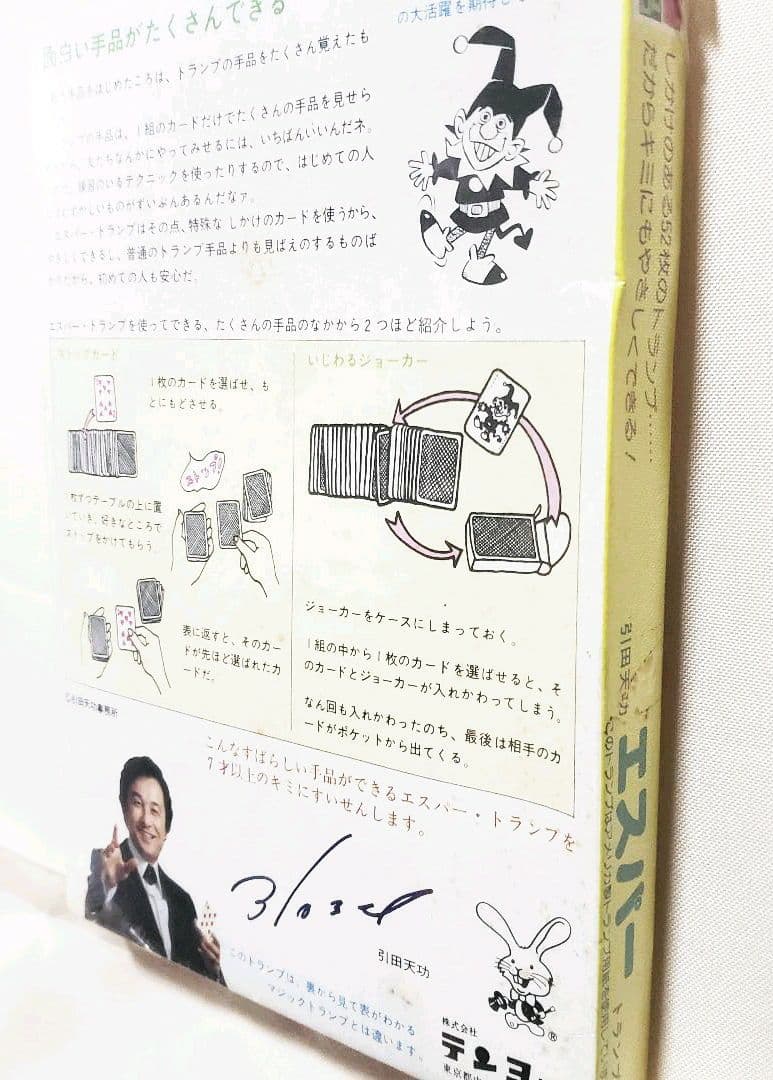 面白い手品がたくさんできる
の大活躍を期待して
手品をはじめたころは、トランプの手品をたくさん覚えたも
の手品は、1組のカードだけでたくさんの手品を見せら
友だちなんかにやってみせるには、いちばんいいんだネ。
練習のいるテクニックを使ったりするので、はじめての人
むずかしいものがずいぶんあるんだなァ。
エスパー・トランプはその点、特殊な しかけのカードを使うから、
やさしくできるし、普通のトランプ手品よりも見ばえのするものば
かりだから、初めての人も安心だ。
エスパー・トランプを使ってできる、たくさんの手品のなかから2つほど紹介しよう。
ストップカード
1枚のカードを選ばせ、も
とにもどさせる。
ストップ!
枚ずつテーブルの上に置
いていき、好きなところで
ストップをかけてもらう。
表に返すと、そのカー
ドが先ほど選ばれたカ
ードだ。
いじわるジョーカー
ジョーカーをケースにしまっておく。
1組の中から1枚のカードを選ばせると、そ
のカードとジョーカーが入れかわってしまう。
なん回も入れかわったのち、最後は相手のカ
ードがポケットから出てくる。
©引田天功事務所
こんなすばらしい手品ができるエスパー・トランプを
7才以上のキミにすいせんします。
引田天功
このトランプは、裏から見て表がわかる
マジックトランプとは違います。
®
株式会社
テンヨ
東京都
しかけのある52枚のトランプ……
だからキミにもやさしくできる!
引田天功
エスパー
トランプ